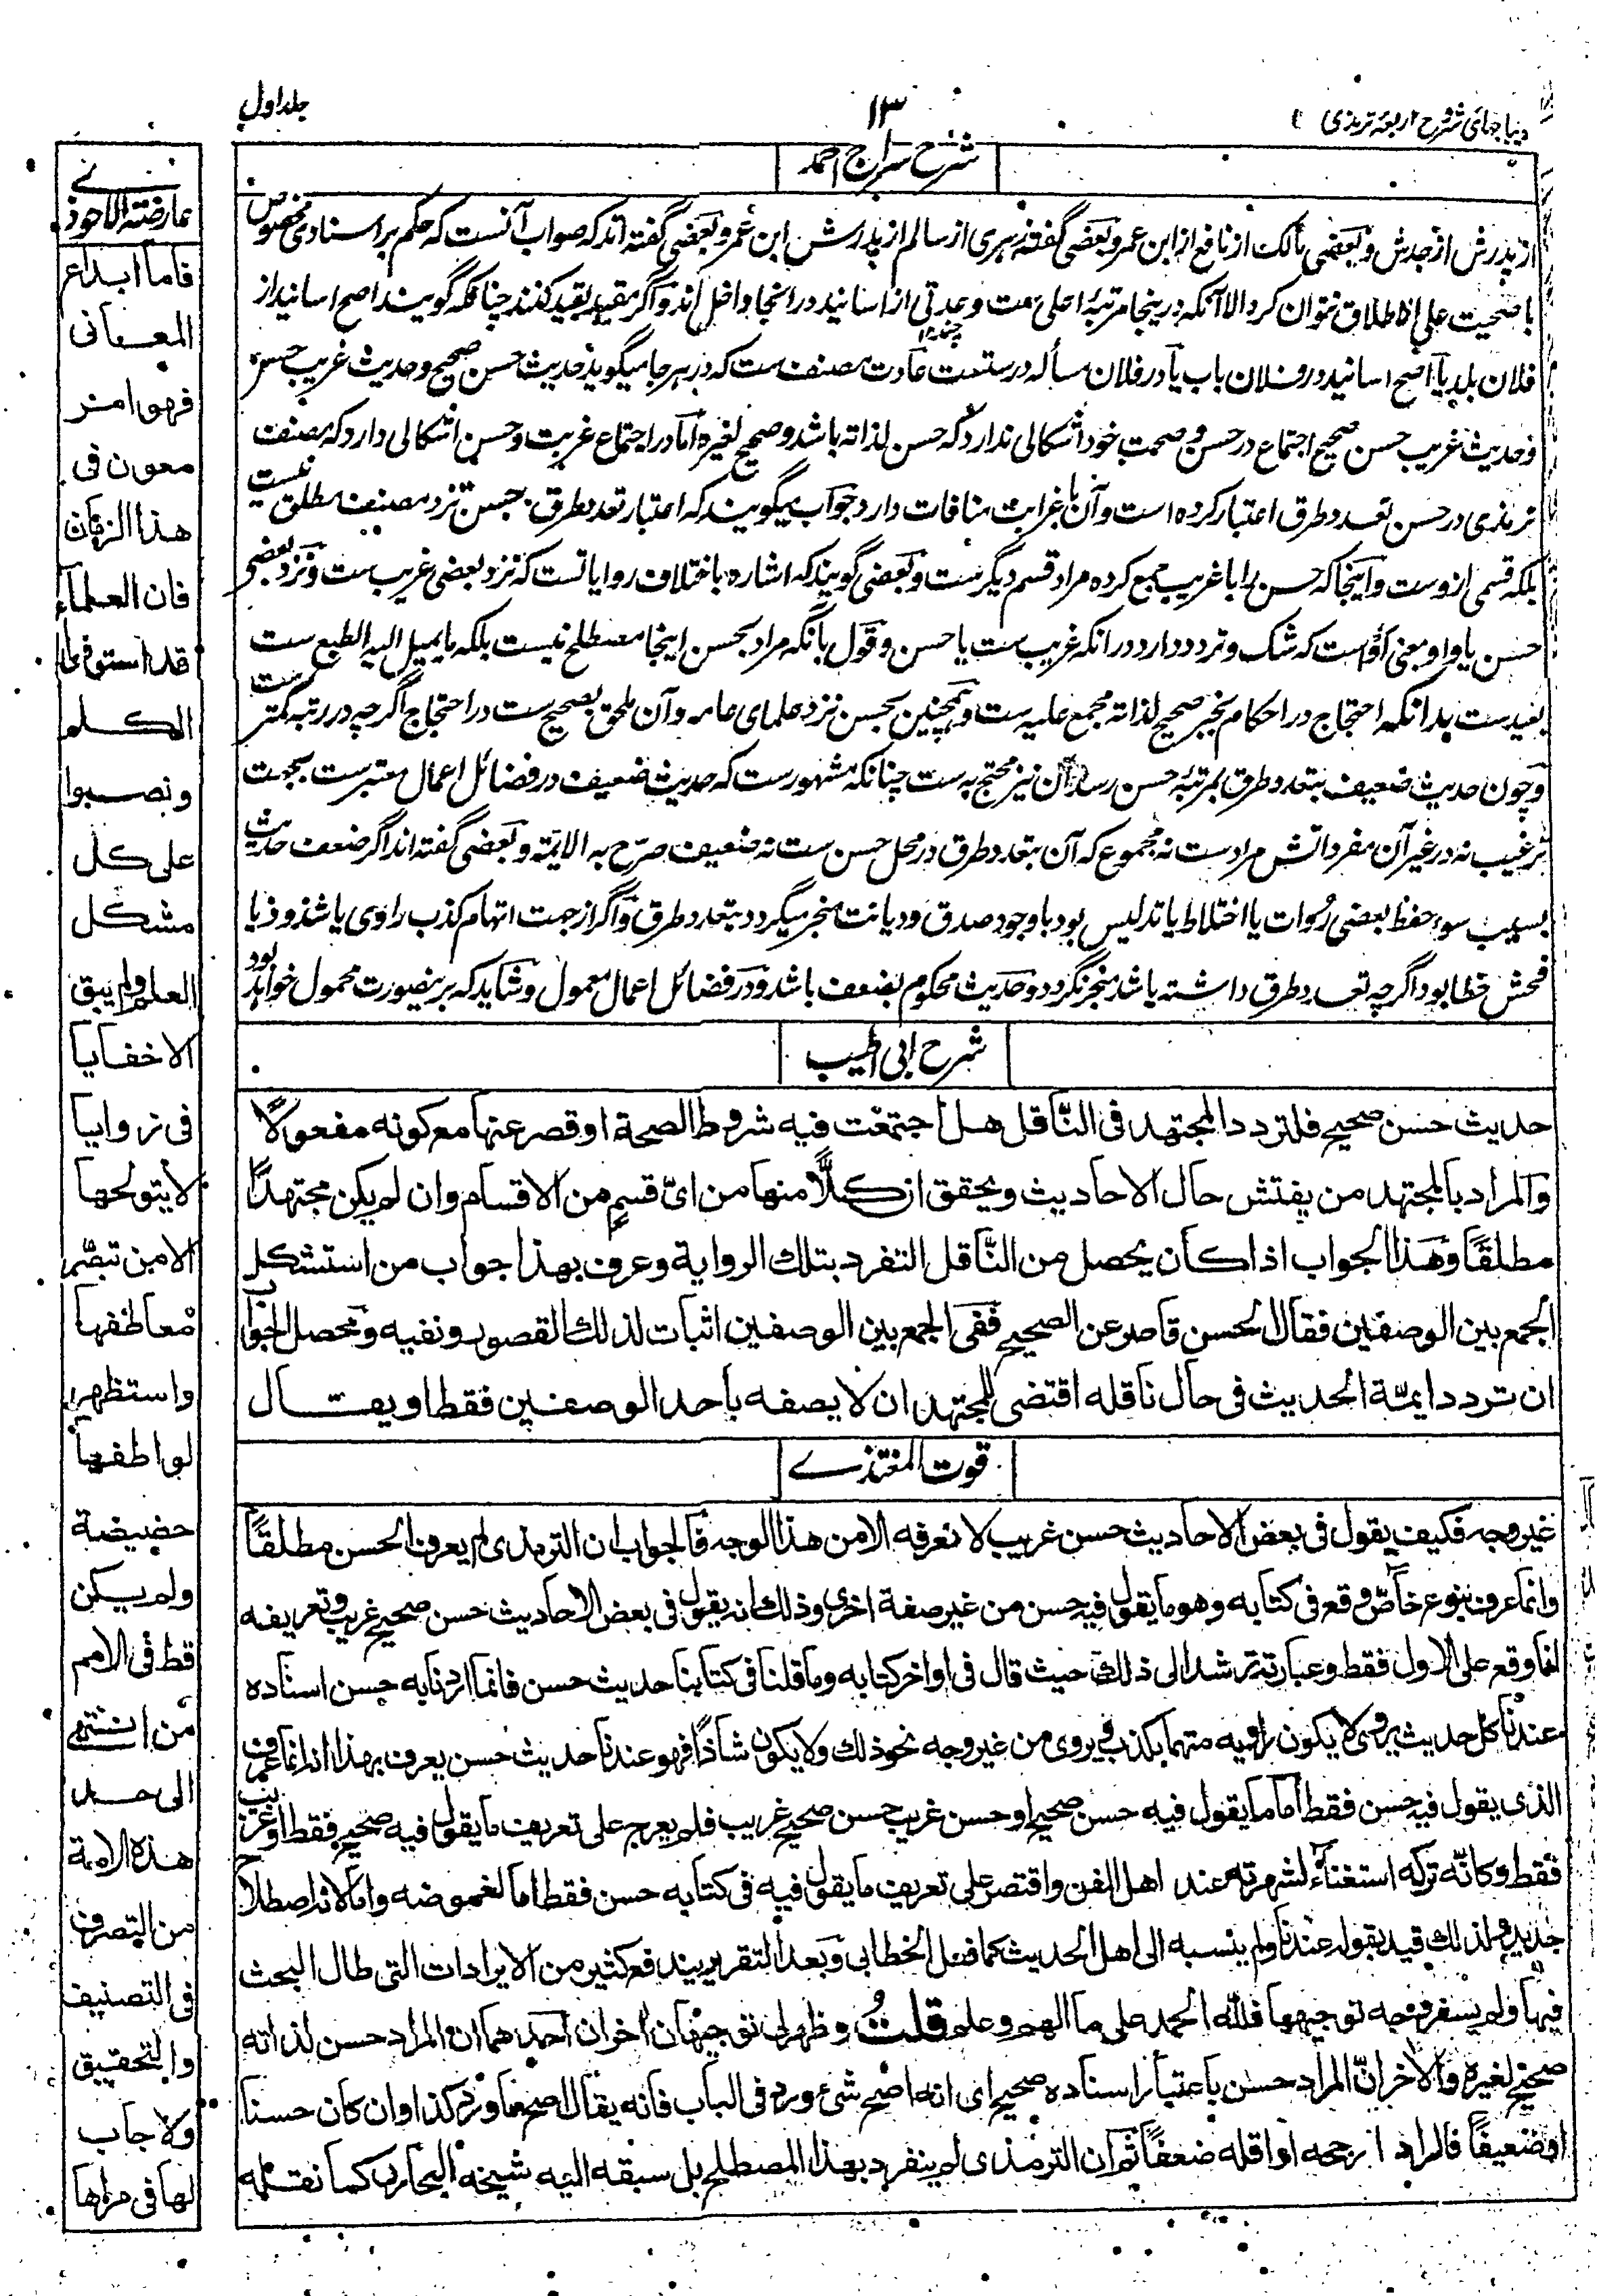 دیباجهای شروح اربعهٔ ترمذی
۱۳
جلد اول
شرح سراج احمد
از پدرش از جدش و بعضی مالک از نافع از ابن عمر و بعضی گفته زهری از سالم از پدرش ابن عمر و بعضی گفته اند که صواب آنست که حکم بر اسنادی مخصوص
باصحیت علی الاطلاق نتوان کرد الا آنکه درینجا مرتبهٔ اعلی ست و عدتی از اسانید در انجا داخل اند و اگر مقید بقید کنند چنانکه گویند اصح اسانید از
فلان بلد یا اصح اسانید در فلان باب یا در فلان مسأله درست ست عادت مصنف ست که در هر جا میگوید حدیث حسن صحیح و حدیث غریب حسن
و حدیث غریب حسن صحیح اجتماع در حسن و صحت خود اشکالی ندارد که حسن لذاته باشد و صحیح لغیره اما در اجتماع غربت و حسن اشکالی دارد که مصنف
ترمذی در حسن تعدد طرق اعتبار کرده است و آن با غرابت منافات دارد جواب میگویند که اعتبار تعدد طرق بحسن نزد مصنف مطلق نیست
بلکه قسمی ازوست و اینجا که حسن را با غریب جمع کرده مراد قسم دیگرست و بعضی گویند که اشاره باختلاف روایاتست که نزد بعضی غریب ست و نزد بعضی
حسن یا واو بمعنی أو است که شک و تردد دارد در آنکه غریب ست یا حسن و قول بآنکه مراد بحسن اینجا مصطلح نیست بلکه ما یمیل الیه الطبع ست
بعیدست بدانکه احتجاج در احکام بخبر صحیح لذاته مجمع علیه ست و همچنین بحسن نزد علمای عامه و آن ملحق بصحیح ست در احتجاج اگرچه در رتبه کمتر ست
و چون حدیث ضعیف بتعدد طرق بمرتبهٔ حسن رسد آن نیز محتج به ست چنانکه مشهورست که حدیث ضعیف در فضائل اعمال معتبرست بجهت
ترغیب نه در غیر آن مفرداتش مرادست نه مجموع که آن بتعدد طرق در محل حسن ست نه ضعیف صرح به الایمة و بعضی گفته اند اگر ضعف حدیث
بسبب سوء حفظ بعضی روات یا اختلاط یا تدلیس بود باوجود صدق و دیانت منجبر میگردد بتعدد طرق و اگر از جهت اتهام کذب راوی یا شذوذ یا
فحش خطا بود اگرچه تعدد طرق داشته باشد منجبر نگردد و حدیث محکوم بضعف باشد و در فضائل اعمال معمول و شاید که برینصورت محمول خواهد بود
شرح ابی الطیب
حدیث حسن صحیح فلتردد المجتهد فی الناقل هل اجتمعت فیه شروط الصحة او قصر عنها مع کونه مفعولا
والمراد بالمجتهد من یفتش حال الاحادیث ویحقق ان کلًّا منها من ایّ قسمٍ من الاقسام وان لم یکن مجتهدًا
مطلقًا وهذا الجواب اذا کان یحصل من الناقل التفرد بتلک الروایة وعرف بهذا جواب من استشکل
الجمع بین الوصفین فقال الحسن قاصر عن الصحیح ففی الجمع بین الوصفین اثبات لذلک القصور ونفیه ومحصل الجواب
ان تردد ایمّة الحدیث فی حال ناقله اقتضی للمجتهد ان لا یصفه باحد الوصفین فقط او یقال
قوت المغتذی
غیر وجه فکیف یقول فی بعض الاحادیث حسن غریب لا نعرفه الا من هذا الوجه فالجواب ان الترمذی لم یعرف الحسن مطلقًا
وانما عرف بنوع خاصّ وقع فی کتابه وهو ما یقول فیه حسن من غیر صفة اخری وذلک انه یقول فی بعض الاحادیث حسن صحیح غریب وتعریفه
انما وقع علی الاول فقط وعبارته ترشد الی ذلک حیث قال فی اواخر کتابه وما قلنا فی کتابنا حدیث حسن فانما اردنا به حسن اسناده
عندنا کل حدیث یروی لا یکون راویه متهما بکذب ویروی من غیر وجه نحو ذلک ولا یکون شاذًا فهو عندنا حدیث حسن یعرف بهذا انه انما عرف
الذی یقول فیه حسن فقط اما ما یقول فیه حسن صحیح او حسن غریب حسن صحیح غریب فلم یعرج علی تعریف ما یقول فیه صحیح فقط او غریب
فقط وکانّه ترکه استغناءً لشهرته عند اهل الفن واقتصر علی تعریف ما یقول فیه فی کتابه حسن فقط اما لغموضه واما لانه اصطلاح
جدید ولذلک قید بقوله عندنا ولم ینسبه الی اهل الحدیث کما فعل الخطابی وبعد التقریر یندفع کثیر من الایرادات التی طال البحث
فیها ولم یسفر وجه توجیهها فللّه الحمد علی ما الهم وعلم قلتُ وظهر لی توجیهان اخران احدهما ان المراد حسن لذاته
صحیح لغیره والآخر انّ المراد حسن باعتبار اسناده صحیح ای انه اصح شئ ورد فی الباب فانه یقال اصح ما ورد کذا وان کان حسنا
او ضعیفًا فالمراد ارجحه او اقله ضعفًا ثم ان الترمذی لم ینفرد بهذا المصطلح بل سبقه الیه شیخه البخاری کما نقله
عارضة الاحوذی
فاما ابداع
المعانی
فهو امر
معون فی
هذا الزمان
فان العلماء
قد استوفوا
الکلم
ونصبوا
علی کل
مشکل
العلم ولم یبق
الا خفایا
فی زوایا
لا یتولجها
الا من تبصّر
معاطفها
واستظهر
لواطفها
حضیضة
ولم یکن
قط فی الامم
من انتهی
الی حد
هذه الامة
من التصرف
فی التصنیف
والتحقیق
ولا جاب
لها فی مداها